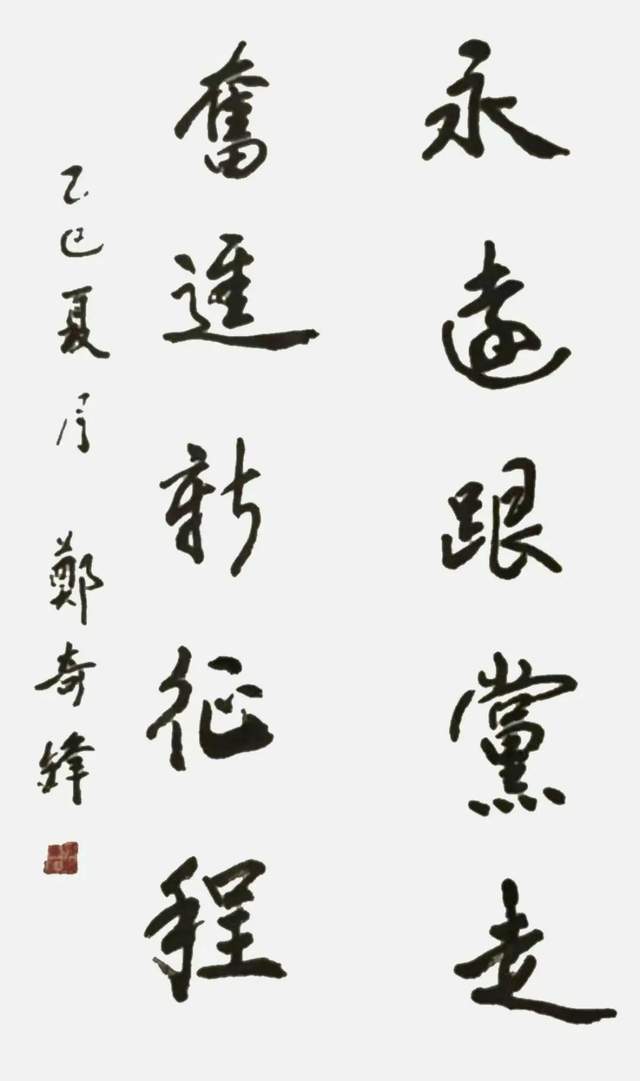 永遠跟黨走
奮進新征程
乙巳夏月 鄭奇鋒